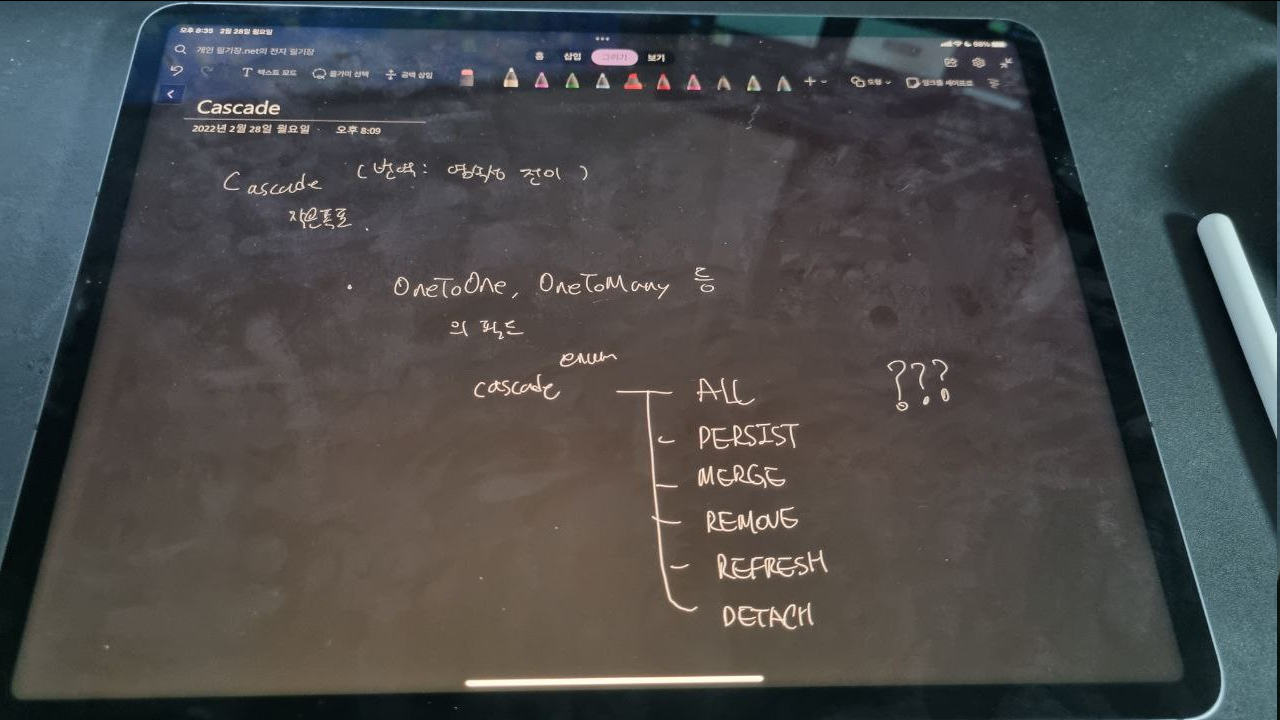 오후 8:35 2월 28일 월요일
98%
개인 필기장.net의 전자 필기장
홈 삽입 그리기 보기
텍스트 모드 올가미 선택 공백 삽입
도형
Cascade
2022년 2월 28일 월요일 오후 8:09
Cascade (번역: 영속성 전이)
작은폭포.
· OneToOne, OneToMany 등
의 필드
enum
cascade ALL ???
PERSIST
MERGE
REMOVE
REFRESH
DETACH